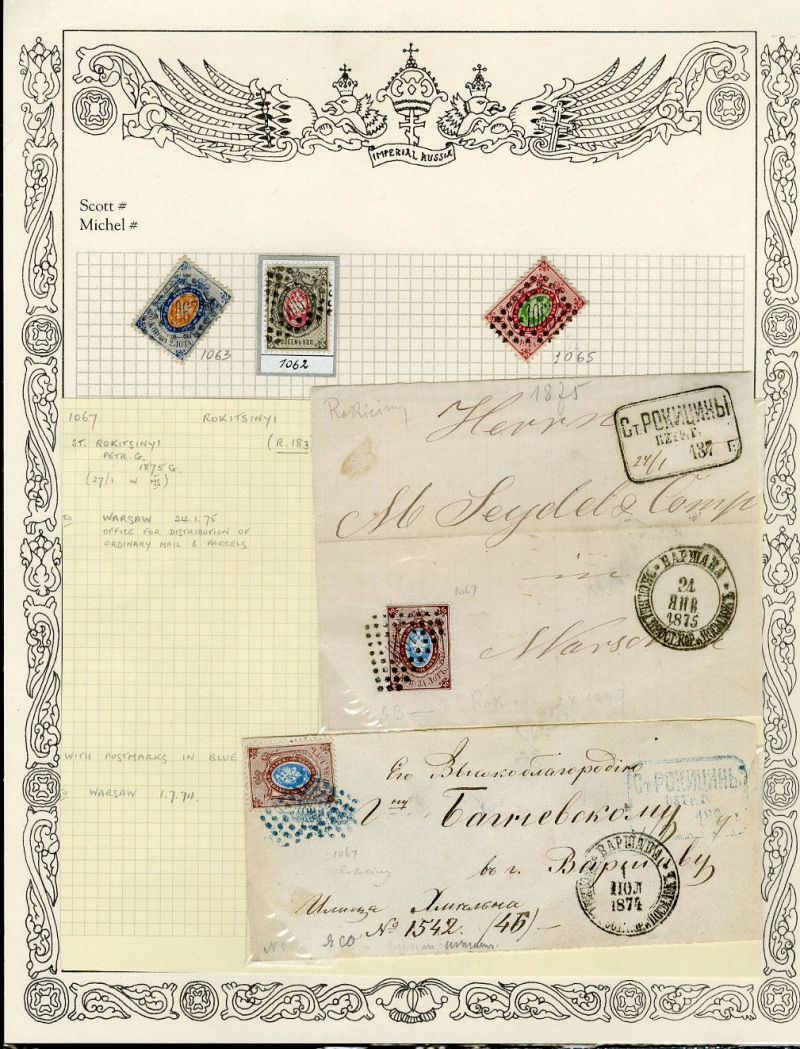 IMPERIAL RUSSIA
Scott #
Michel #
1063
1062
1065
ВОСЕМЬ КОП.
1067 ROKITSINYI
ST. ROKITSINYI (R.183
PETR. G.
1875 G.
(27/1 IN MS)
TO WARSAW 24.1.75
OFFICE FOR DISTRIBUTION OF
ORDINARY MAIL & PARCELS
WITH POSTMARKS IN BLUE
TO WARSAW 1.7.74
Rokiciny
1875
Herrn
М Seydel & Comp
in
Warsch
Ст. РОКИЦИНЫ
ПЕТР. Г.
24/1 187 Г.
ВАРШАВА
21
ЯНВ
1875
1067
ЗА ЛОТЪ
Его Высокоблагородію
Г ну Багневскому
въ г. Варшаву
Улица Хмельна
№ 1542. (46)
Ст РОКИЦИНЫ
ПЕТР. Г.
ВАРШАВА
1 ІЮЛ
1874
1067
Rokiciny